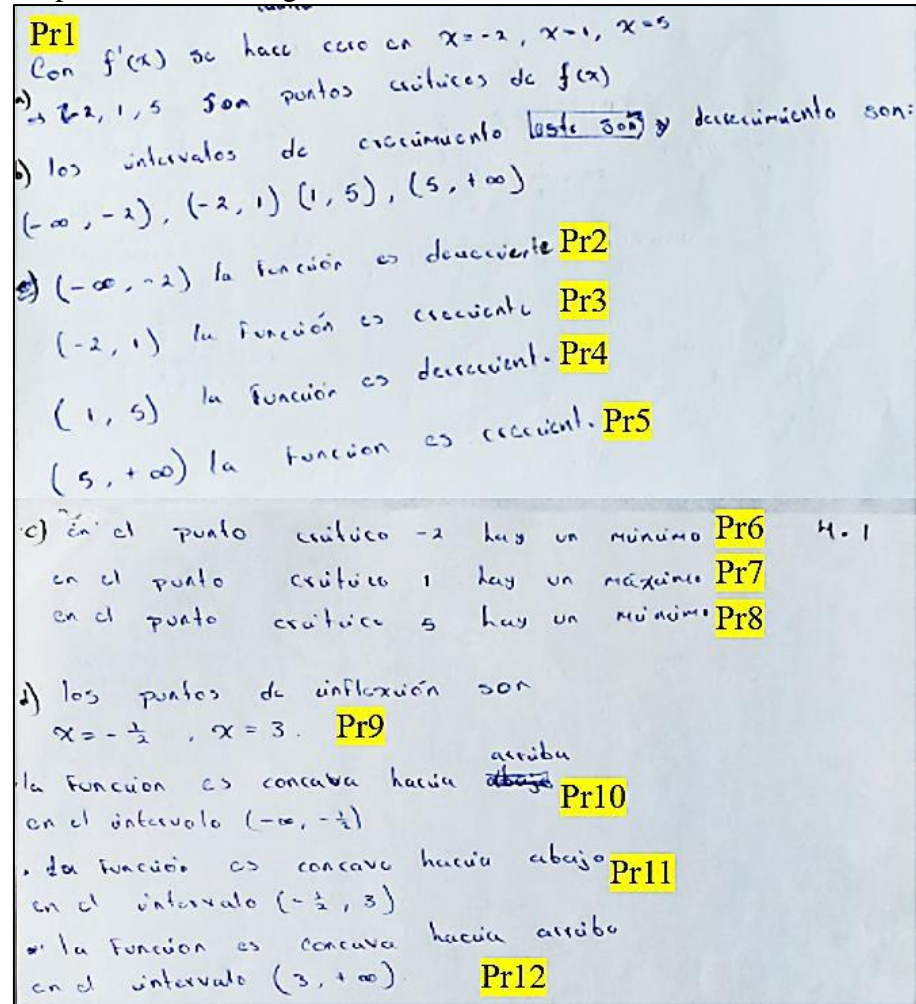 Pr1
Con f'(x) se hace cero en x=-2, x=1, x=5
a) → -2, 1, 5 son puntos críticos de f(x)
b) los intervalos de crecimiento y decrecimiento son:
(-∞, -2), (-2, 1) (1, 5), (5, +∞)
(-∞, -2) la función es Pr2
(-2, 1) la función es creciente Pr3
(1, 5) la función es Pr4
(5, +∞) la funcion es Pr5
c) en el punto crítico -2 hay un mínimo Pr6 4.1
en el punto crítico 1 hay un máximo Pr7
en el punto crítico 5 hay un mínimo Pr8
d) los puntos de inflexión son
x = -1/2, x = 3. Pr9
arriba
la función es concava hacia abajo Pr10
en el intervalo (-∞, -1/2)
. la función es concava hacia abajo Pr11
en el intervalo (-1/2, 3)
la Función es concava hacia arriba
en el intervalo (3, +∞). Pr12